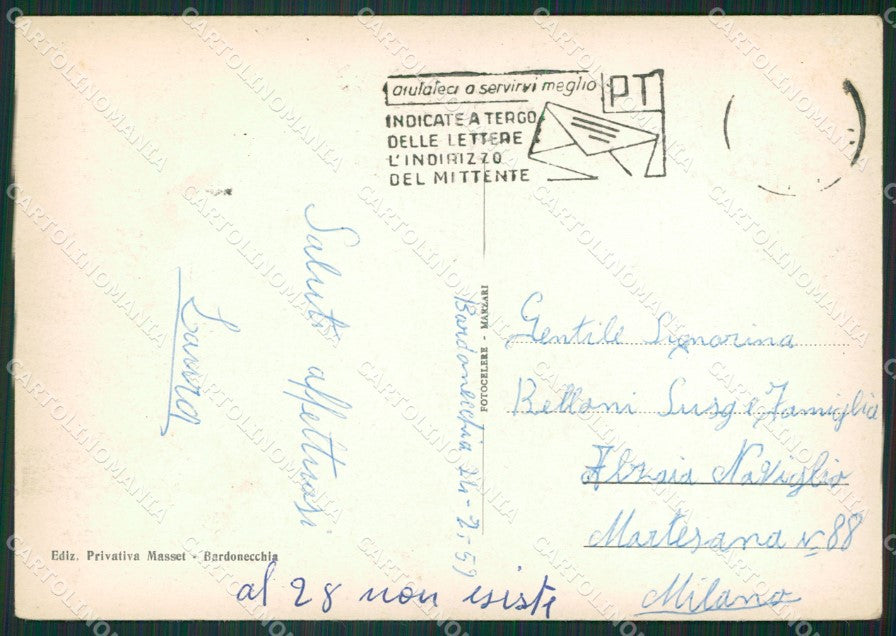 aiutateci a servirvi meglio
PT
INDICATE A TERGO
DELLE LETTERE
L'INDIRIZZO
DEL MITTENTE
Saluti affettuosi
Laura
Bardonecchia 24-2-59
FOTOCELERE - MARZARI
Gentile Signorina
Belloni Susg e Famiglia
Alzaia Naviglio
Martesana n. 88
Milano
Ediz. Privativa Masset - Bardonecchia
al 28 non esiste
CARTOLINOMANIA